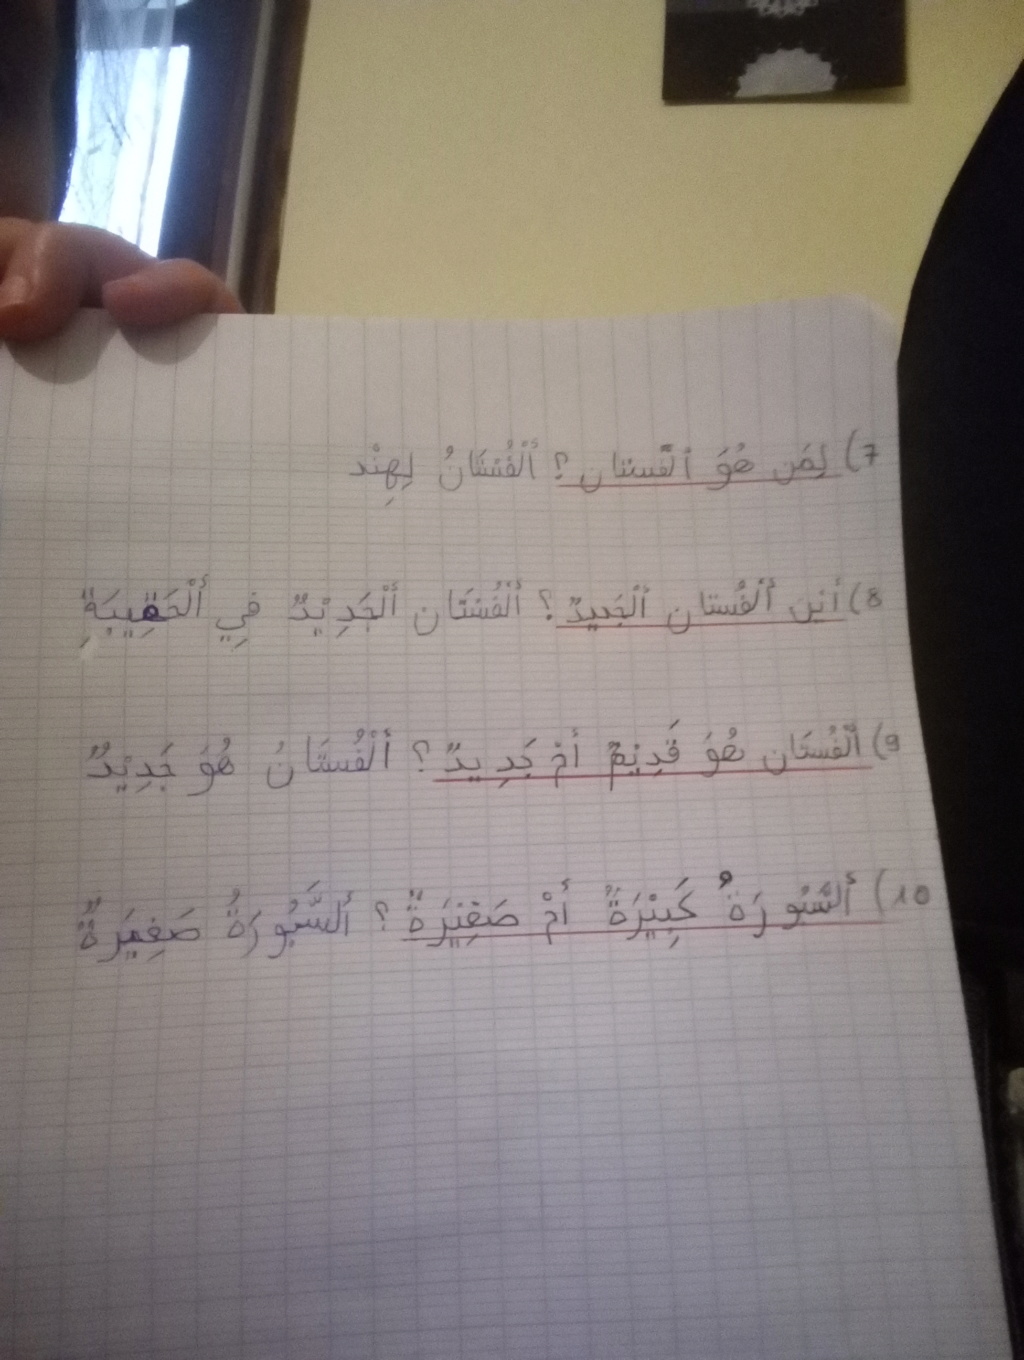 7) لِمَن هُوَ ألفُستان ؟ أَلْفُسْتَانُ لِهِنْد
8) أين أَلْفُستان أَلْجَديدٌ ؟ أَلْفُسْتَان أَلْجَدِيْدٌ فِي أَلْحَقِيبَةِ
9) أَلْفُسْتَان هُوَ قَدِيْمٌ أمْ جَدِيدٌ ؟ أَلْفُسْتَانُ هُوَ جَدِيْدٌ
10) أَلسَّبُورَةُ كَبِيْرَةٌ أَمْ صَغْيْرَةٌ ؟ أَلسَّبُورَةُ صَغِيرَةٌ